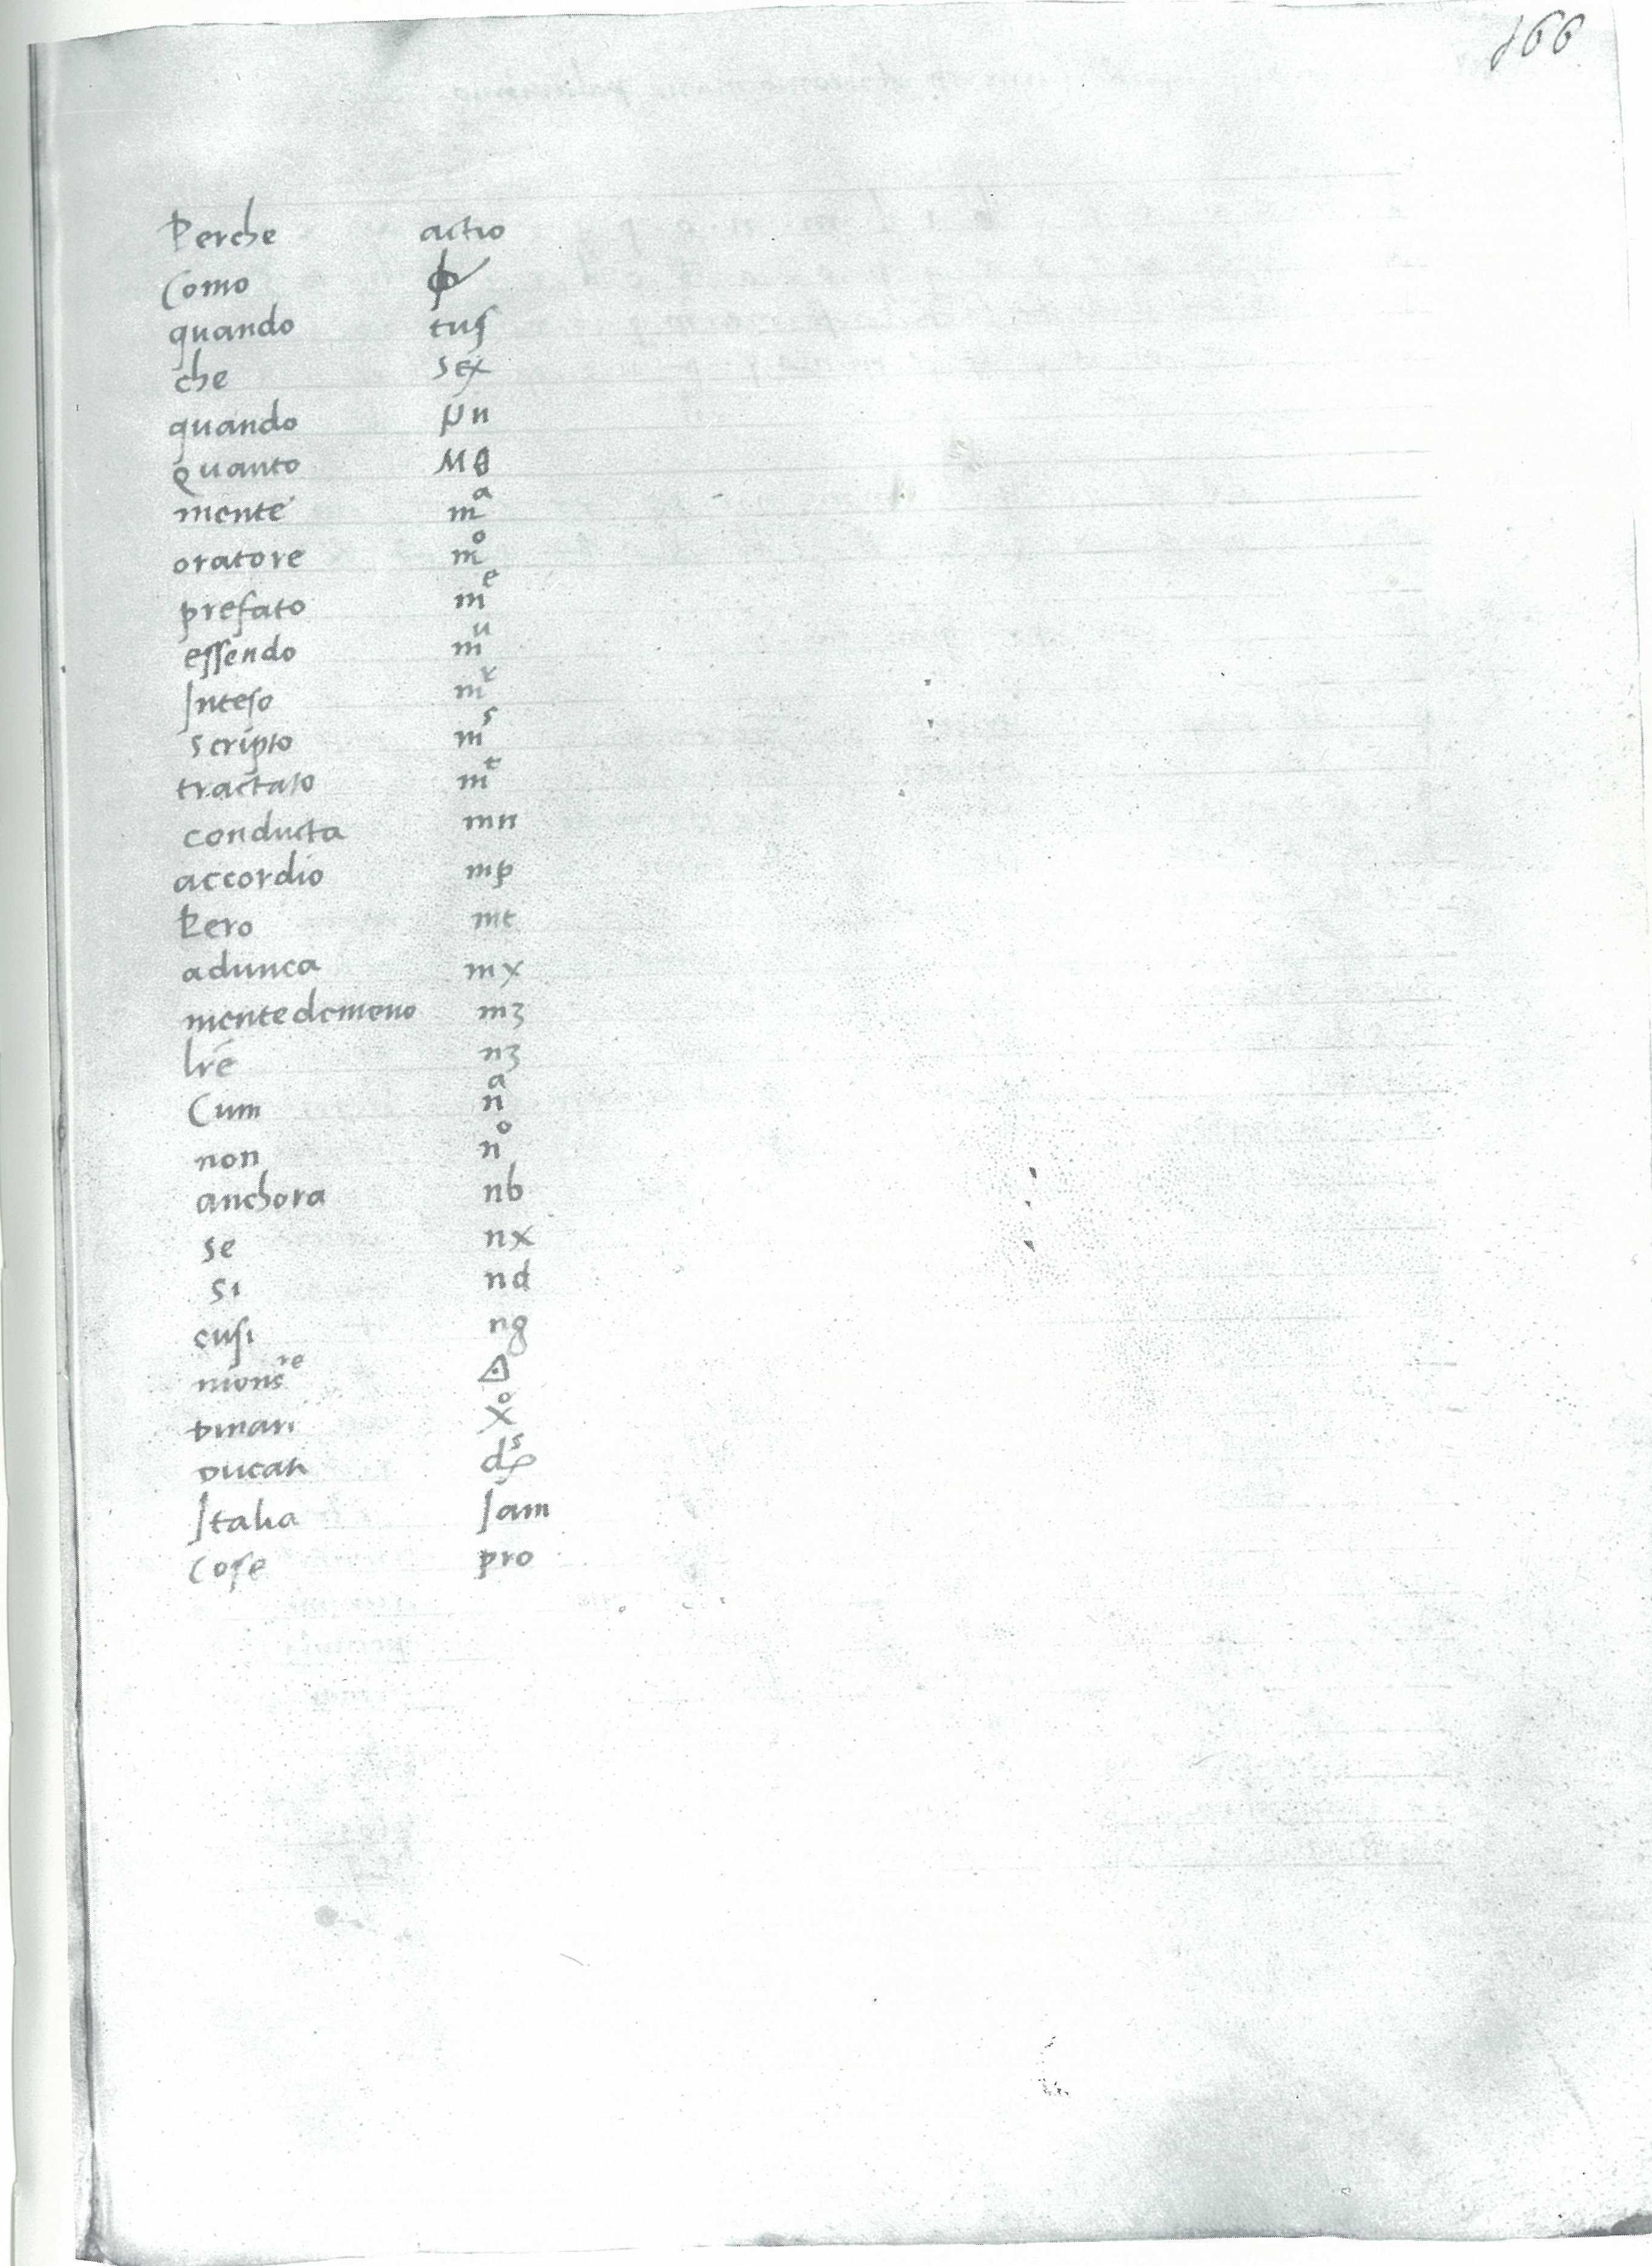 166
Perche actio
Como ϕ
quando tus
che sex
quando μn
Quanto Mθ
mente mᵃ
oratore mᵒ
prefato mᵉ
essendo mᵘ
Inteso mˣ
scripto mˢ
tractato mᵗ
conducta mn
accordio mp
Pero mt
adunca mx
mentedemeno mʒ
lre nʒ
Cum nᵃ
non nᵒ
anchora nb
se nx
si nd
cusi ng
monsʳᵉ
Dinari x̊
Ducati
Italia Iam
Cose pro